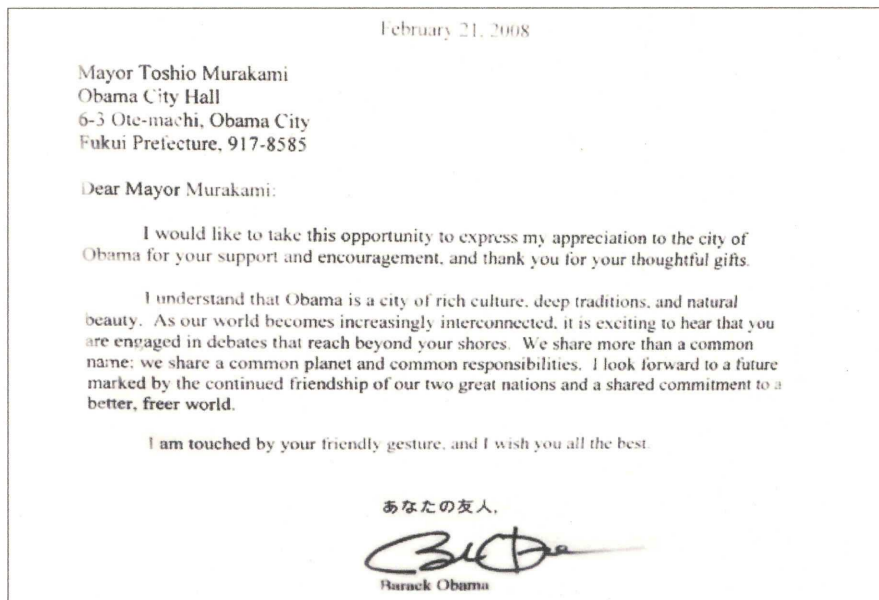 February 21, 2008
Mayor Toshio Murakami
Obama City Hall
6-3 Ote-machi, Obama City
Fukui Prefecture, 917-8585
Dear Mayor Murakami:
I would like to take this opportunity to express my appreciation to the city of
Obama for your support and encouragement, and thank you for your thoughtful gifts.
I understand that Obama is a city of rich culture, deep traditions, and natural
beauty. As our world becomes increasingly interconnected, it is exciting to hear that you
are engaged in debates that reach beyond your shores. We share more than a common
name; we share a common planet and common responsibilities. I look forward to a future
marked by the continued friendship of our two great nations and a shared commitment to a
better, freer world.
I am touched by your friendly gesture, and I wish you all the best.
あなたの友人,
Barack Obama